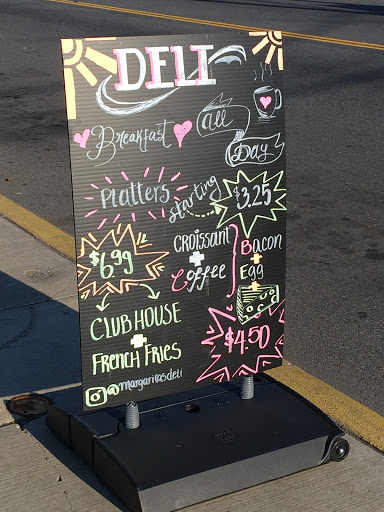 DELI
Breakfast
All
Day
Platters
starting
$3.25
$6.99
CROISSANT
+
Coffee
BACON
+
Egg
+
CLUB HOUSE
+
FRENCH FRIES
$4.50
@margaritasdeli